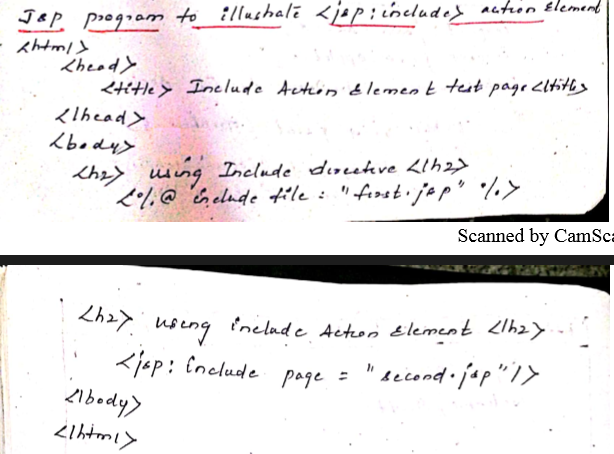 JSP program to illustrate <jsp:include> action Element
<html>
<head>
<title> Include Action Element test page </title>
</head>
<body>
<h2> using Include directive </h2>
<%@ include file = "first.jsp" %>
Scanned by CamSca
<h2> using include Action Element </h2>
<jsp: include page = "second.jsp"/>
</body>
</html>